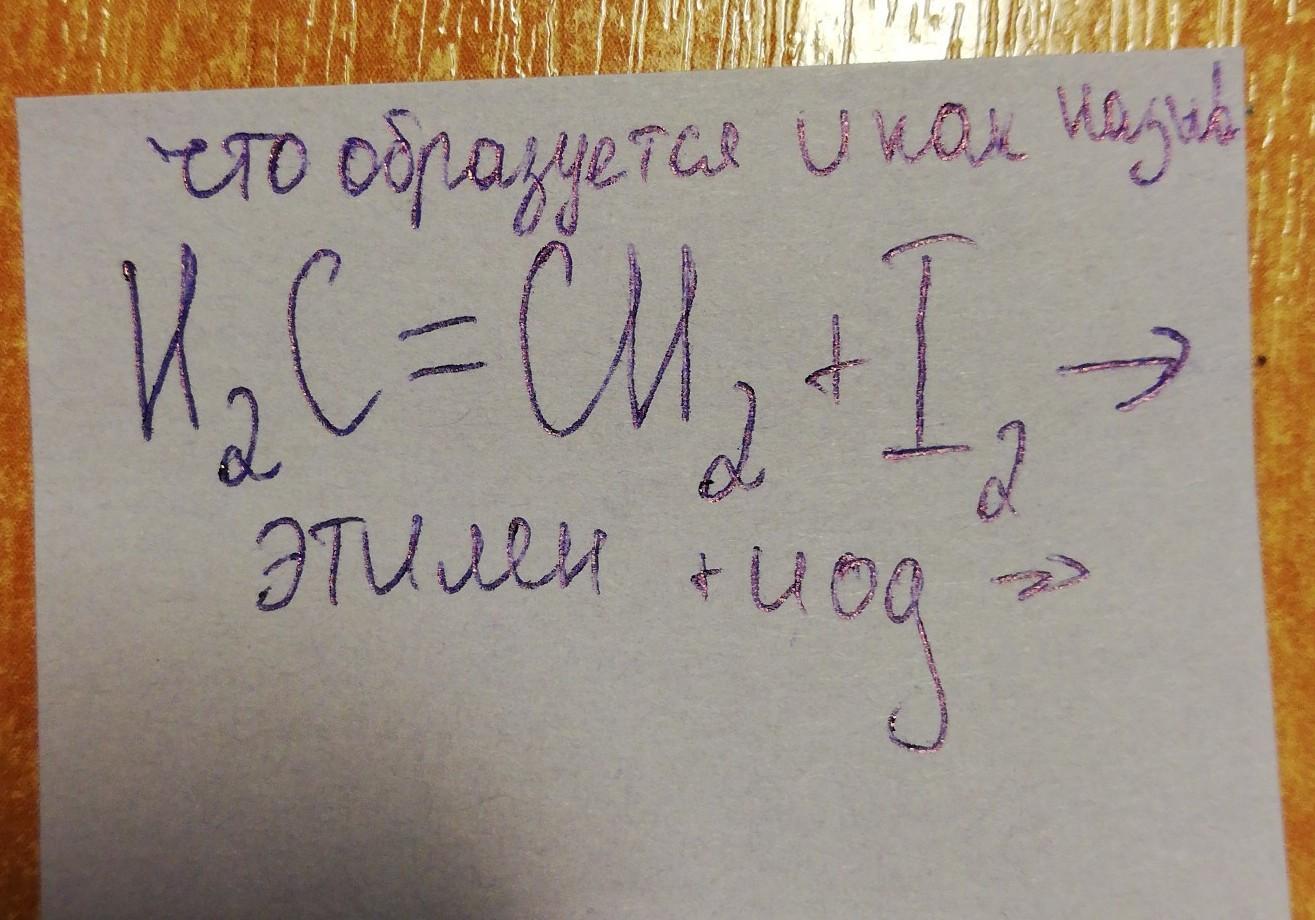 что образуется и как назыв
H₂C=CH₂+I₂→
этилен +иод →